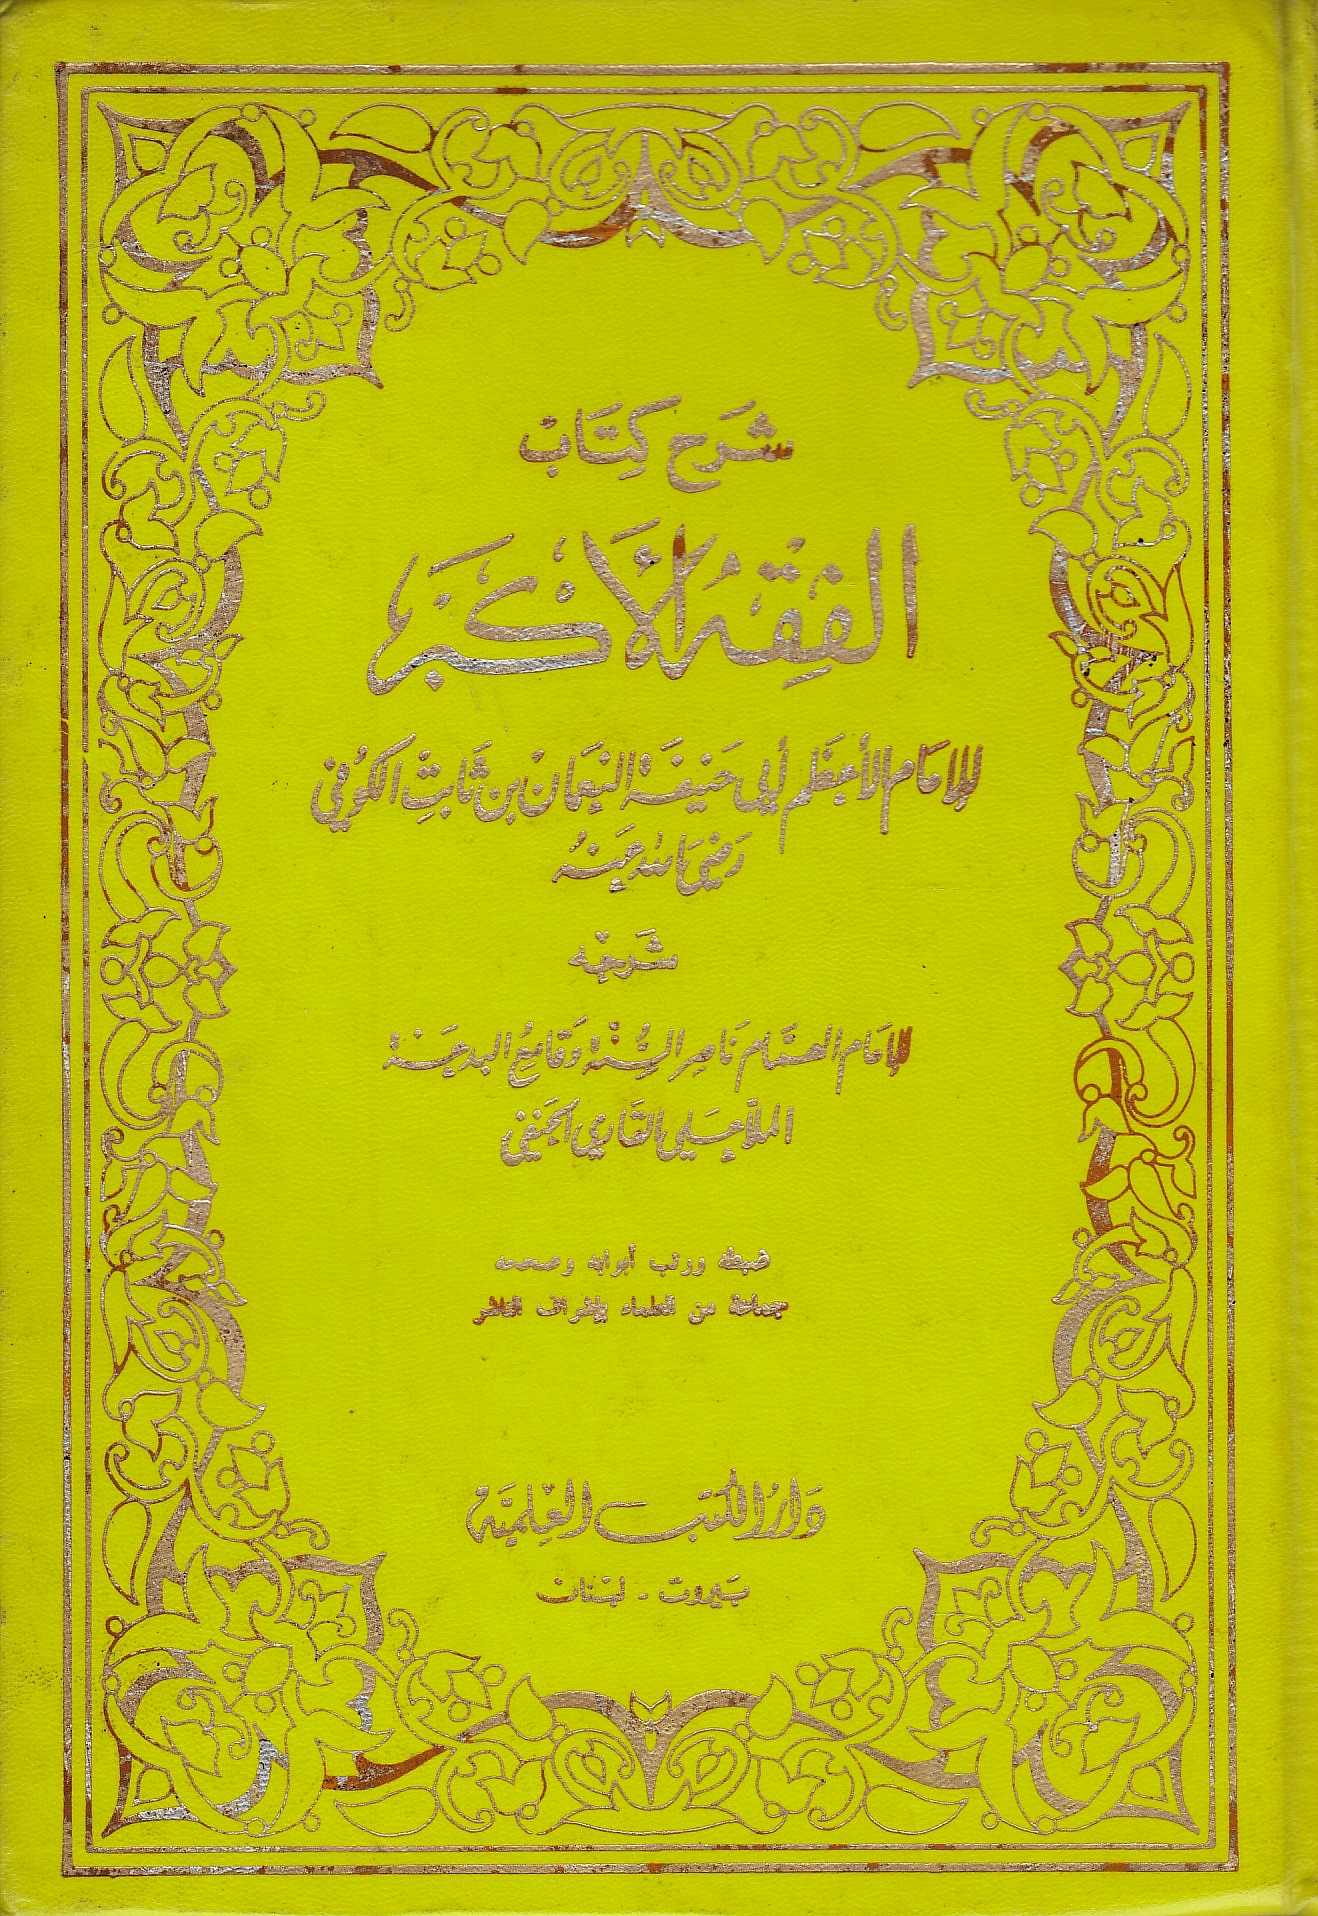 شرح كتاب
الفقه الأكبر
للإمام الأعظم أبي حنيفة النعمان بن ثابت الكوفي
رضي الله عنه
شرحه
الإمام الهمام ناصر السنة وقامع البدعة
الملا علي القاري الحنفي
ضبطه ورتب أبوابه وصححه
جماعة من العلماء بإشراف الناشر
دار الكتب العلمية
بيروت - لبنان